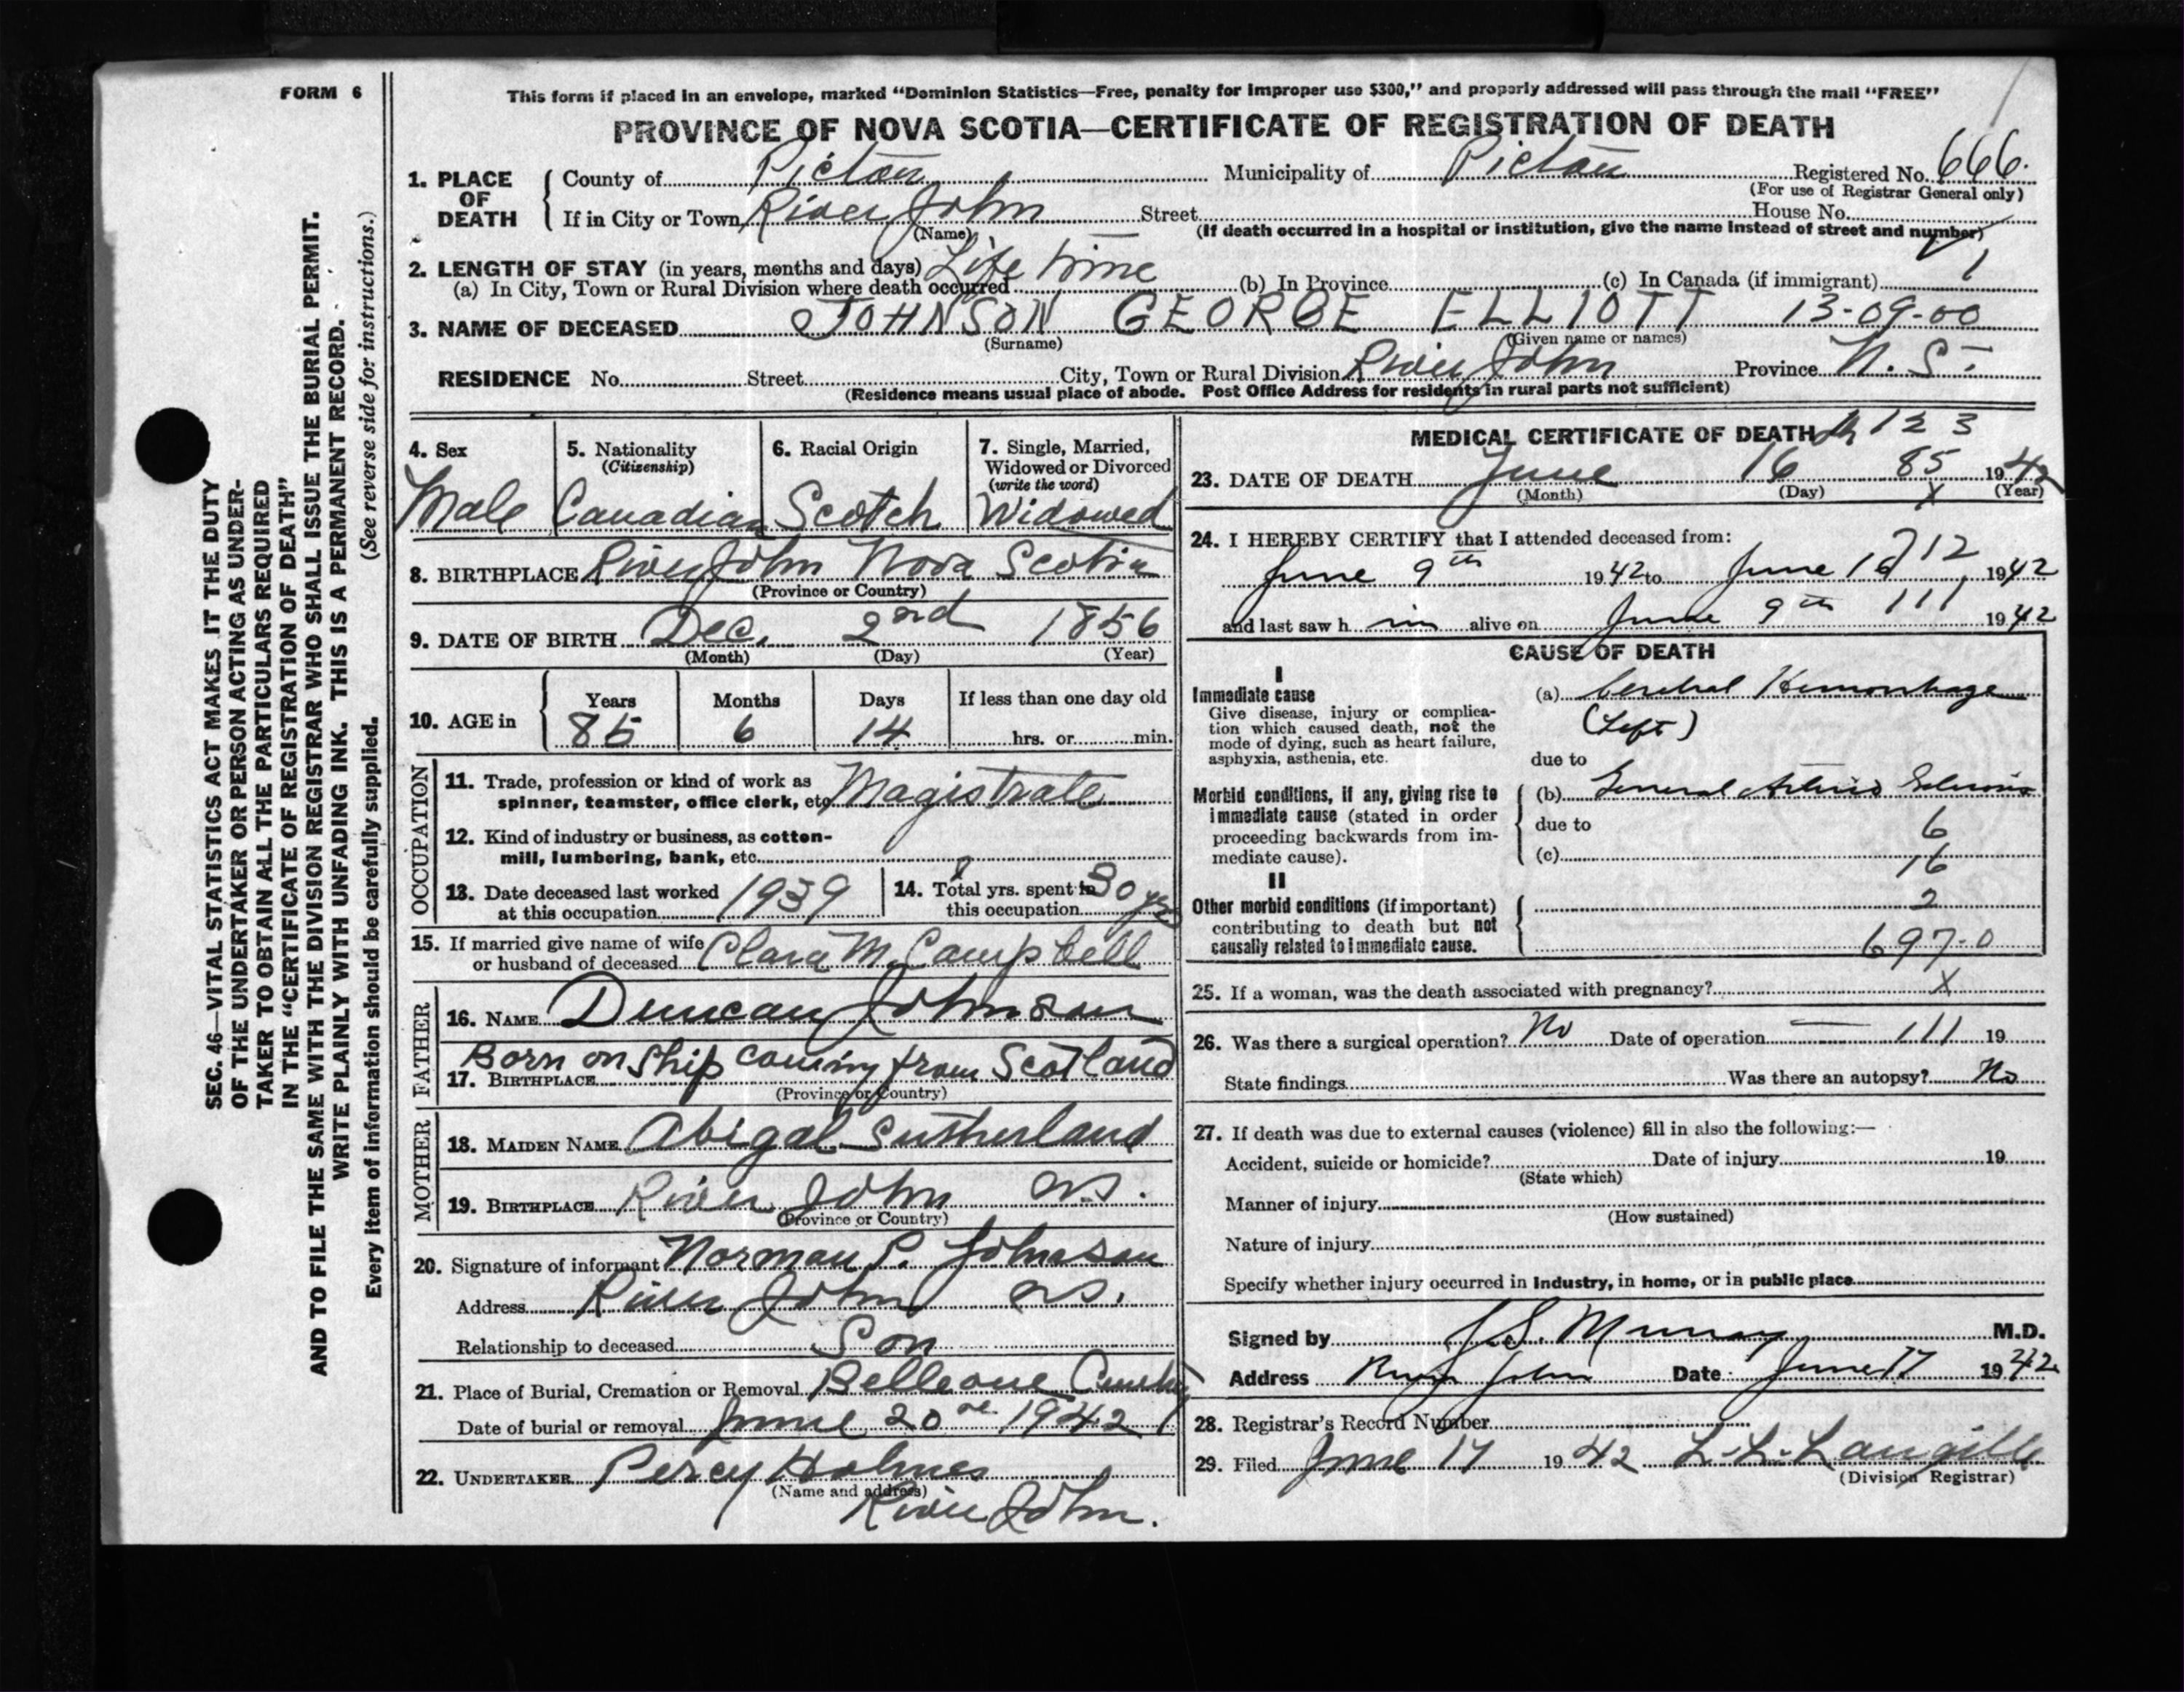 FORM 6
SEC. 46—VITAL STATISTICS ACT MAKES IT THE DUTY
OF THE UNDERTAKER OR PERSON ACTING AS UNDER-
TAKER TO OBTAIN ALL THE PARTICULARS REQUIRED
IN THE "CERTIFICATE OF REGISTRATION OF DEATH"
AND TO FILE THE SAME WITH THE DIVISION REGISTRAR WHO SHALL ISSUE THE BURIAL PERMIT.
WRITE PLAINLY WITH UNFADING INK. THIS IS A PERMANENT RECORD.
Every item of information should be carefully supplied. (See reverse side for instructions.)
This form if placed in an envelope, marked "Dominion Statistics—Free, penalty for improper use $300," and properly addressed will pass through the mail "FREE"
PROVINCE OF NOVA SCOTIA—CERTIFICATE OF REGISTRATION OF DEATH
1. PLACE OF DEATH
County of Pictou Municipality of Pictou Registered No. 666.
(For use of Registrar General only)
If in City or Town River John Street House No.
(Name) (If death occurred in a hospital or institution, give the name instead of street and number)
2. LENGTH OF STAY (in years, months and days) Life time
(a) In City, Town or Rural Division where death occurred (b) In Province (c) In Canada (if immigrant) 1
3. NAME OF DECEASED JOHNSON GEORGE ELLIOTT 13-09-00
(Surname) (Given name or names)
RESIDENCE No. Street City, Town or Rural Division River John Province N.S.
(Residence means usual place of abode. Post Office Address for residents in rural parts not sufficient)
4. Sex
Male
5. Nationality
(Citizenship)
Canadian
6. Racial Origin
Scotch
7. Single, Married,
Widowed or Divorced
(write the word)
Widowed
8. BIRTHPLACE River John Nova Scotia
(Province or Country)
9. DATE OF BIRTH Dec. 2nd 1856
(Month) (Day) (Year)
10. AGE in
Years Months Days If less than one day old
85 6 14 hrs. or min.
OCCUPATION
11. Trade, profession or kind of work as
spinner, teamster, office clerk, etc. Magistrate
12. Kind of industry or business, as cotton-
mill, lumbering, bank, etc.
13. Date deceased last worked
at this occupation 1939
14. Total yrs. spent in
this occupation 30 yrs
15. If married give name of wife
or husband of deceased Clara M. Campbell
FATHER
16. NAME Duncan Johnson
Born on Ship coming from Scotland
17. BIRTHPLACE
(Province or Country)
MOTHER
18. MAIDEN NAME Abigal Sutherland
19. BIRTHPLACE River John N.S.
(Province or Country)
20. Signature of informant Norman P. Johnson
Address River John N.S.
Relationship to deceased Son
21. Place of Burial, Cremation or Removal Belleoue
Date of burial or removal June 20 1942
22. UNDERTAKER Percy Holmes
(Name and address)
River John.
MEDICAL CERTIFICATE OF DEATH 123
23. DATE OF DEATH June 16 85 1942
(Month) (Day) X (Year)
24. I HEREBY CERTIFY that I attended deceased from:
June 9th 1942 to June 16 712 1942
and last saw h im alive on June 9th 111 1942
CAUSE OF DEATH
I
Immediate cause
Give disease, injury or complica-
tion which caused death, not the
mode of dying, such as heart failure,
asphyxia, asthenia, etc.
(a) Cerebral Hemorrhage
(Left)
due to
Morbid conditions, if any, giving rise to
immediate cause (stated in order
proceeding backwards from im-
mediate cause).
(b) General Arterio Sclerosis
due to 6
(c) 16
II
Other morbid conditions (if important)
contributing to death but not
causally related to immediate cause.
2
697-0
25. If a woman, was the death associated with pregnancy? X
26. Was there a surgical operation? No Date of operation — 111 19
State findings Was there an autopsy? No
27. If death was due to external causes (violence) fill in also the following:—
Accident, suicide or homicide? Date of injury 19
(State which)
Manner of injury
(How sustained)
Nature of injury
Specify whether injury occurred in industry, in home, or in public place
Signed by J.S. Murray M.D.
Address River John Date June 17 1942
28. Registrar's Record Number
29. Filed June 17 1942 L. L. Langille
(Division Registrar)